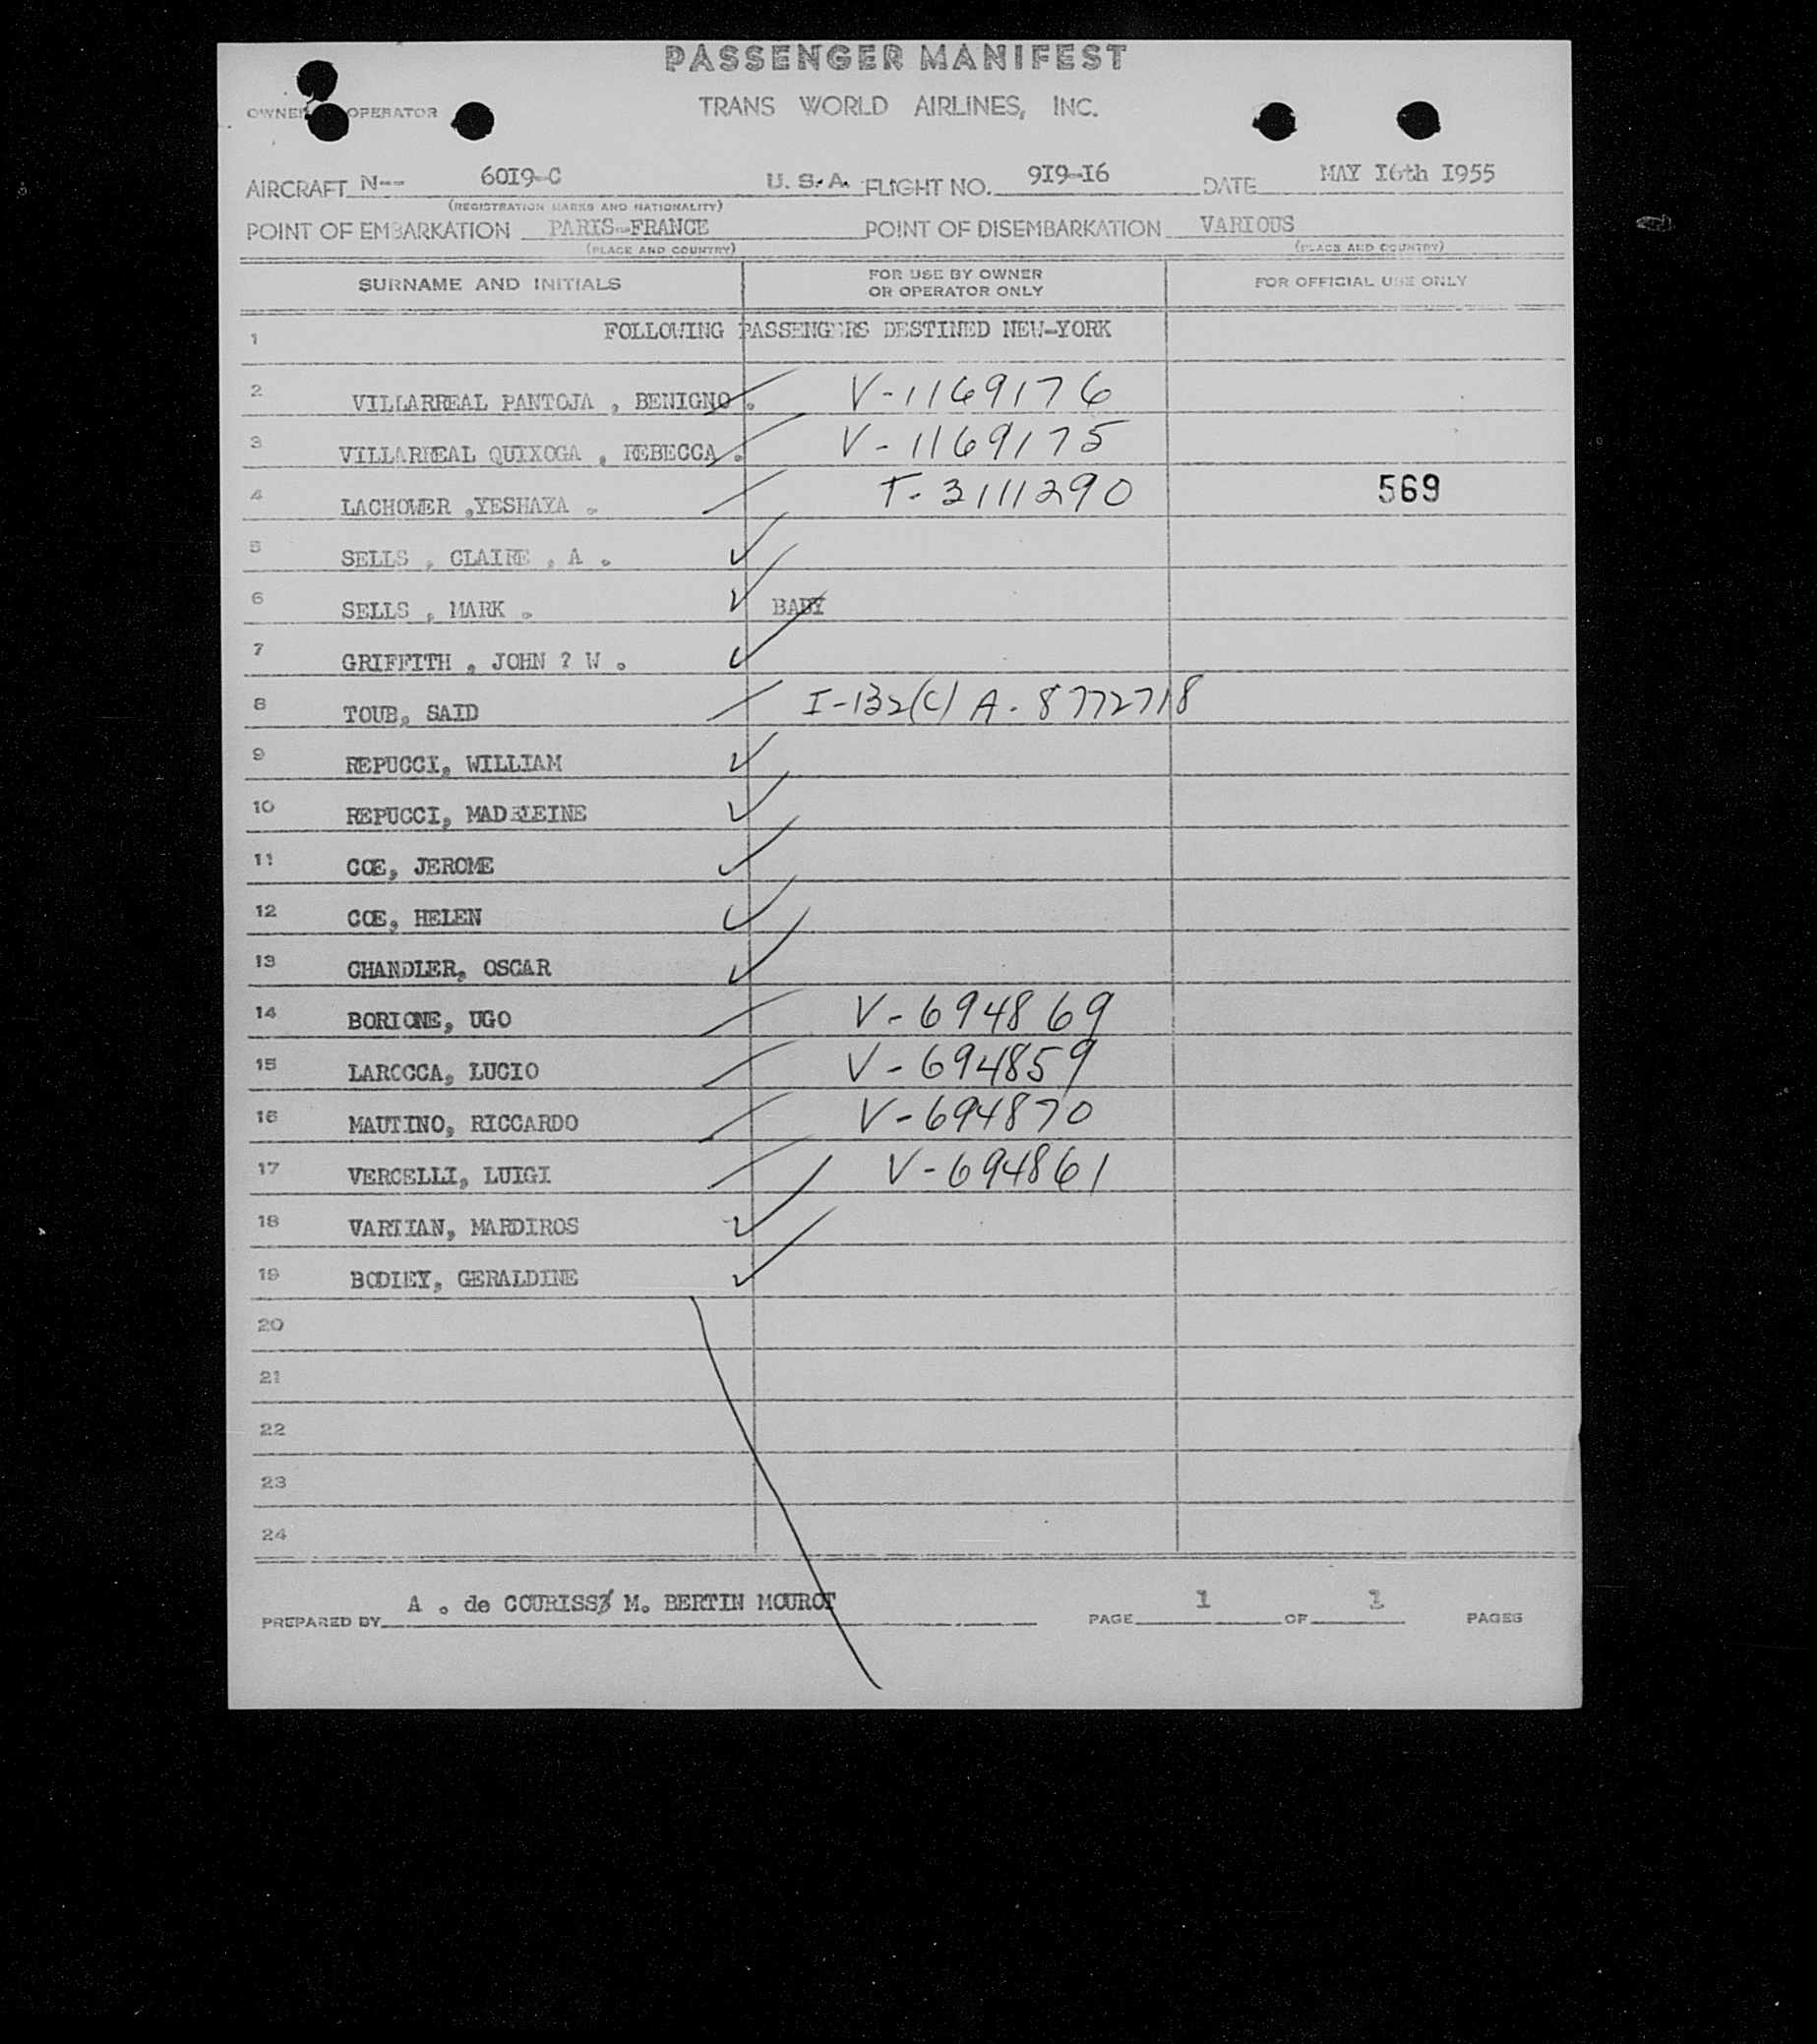 PASSENGER MANIFEST
OWNER OPERATOR TRANS WORLD AIRLINES, INC.
AIRCRAFT N-- 6OI9-C U. S. A. FLIGHT NO. 9I9-I6 DATE MAY I6th I955
(REGISTRATION MARKS AND NATIONALITY)
POINT OF EMBARKATION PARIS-FRANCE POINT OF DISEMBARKATION VARIOUS
(PLACE AND COUNTRY) (PLACE AND COUNTRY)
SURNAME AND INITIALS FOR USE BY OWNER OR OPERATOR ONLY FOR OFFICIAL USE ONLY
1 FOLLOWING PASSENGERS DESTINED NEW-YORK
2 VILLARREAL PANTOJA , BENIGNO . V-1169176
3 VILLARREAL QUIXOGA , REBECCA . V-1169175
4 LACHOWER ,YESHAYA . T-3111290 569
5 SELLS , CLAIRE , A .
6 SELLS , MARK . BABY
7 GRIFFITH , JOHN ? W .
8 TOUB, SAID I-132(C) A-8772718
9 REPUCCI, WILLIAM
10 REPUCCI, MADELEINE
11 COE, JEROME
12 COE, HELEN
13 CHANDLER, OSCAR
14 BORIONE, UGO V-694869
15 LAROCCA, LUCIO V-694859
16 MAUTINO, RICCARDO V-694870
17 VERCELLI, LUIGI V-694861
18 VARTIAN, MARDIROS
19 BODIEY, GERALDINE
20
21
22
23
24
PREPARED BY A . de COURISS/ M. BERTIN MOUROT PAGE 1 OF 1 PAGES